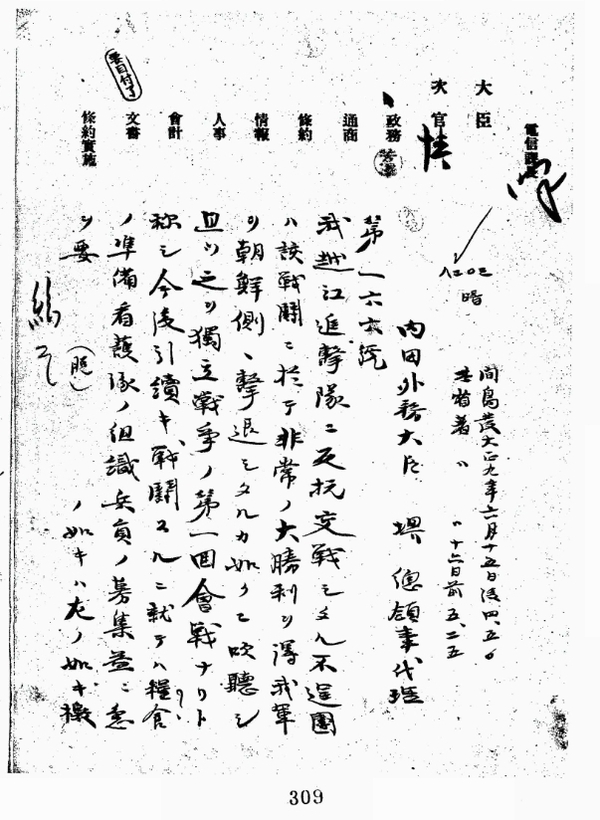 電信課長
大臣
次官
政務
通商
條約
情報
人事
會計
文書
條約實施
要目付了
八二〇二
暗
間島發大正九年六月十五日後四、五〇
本省着〃 〃十六日前五、二五
內田外務大臣 堺總領事代理
第一六六號
我越江追擊隊ニ反抗交戰シタル不逞團
ハ該戰鬪ニ於テ非常ノ大勝利ヲ得我軍
ヲ朝鮮側ヘ擊退シタルカ如ク吹聽シ
且ツ之ヲ獨立戰爭ノ第一回會戰ナリト
称シ今後引續キ戰鬪スルニ就テハ糧食
ノ準備看護隊ノ組識兵員ノ募集
ヲ要
ノ如キハ左ノ如キ檄
309